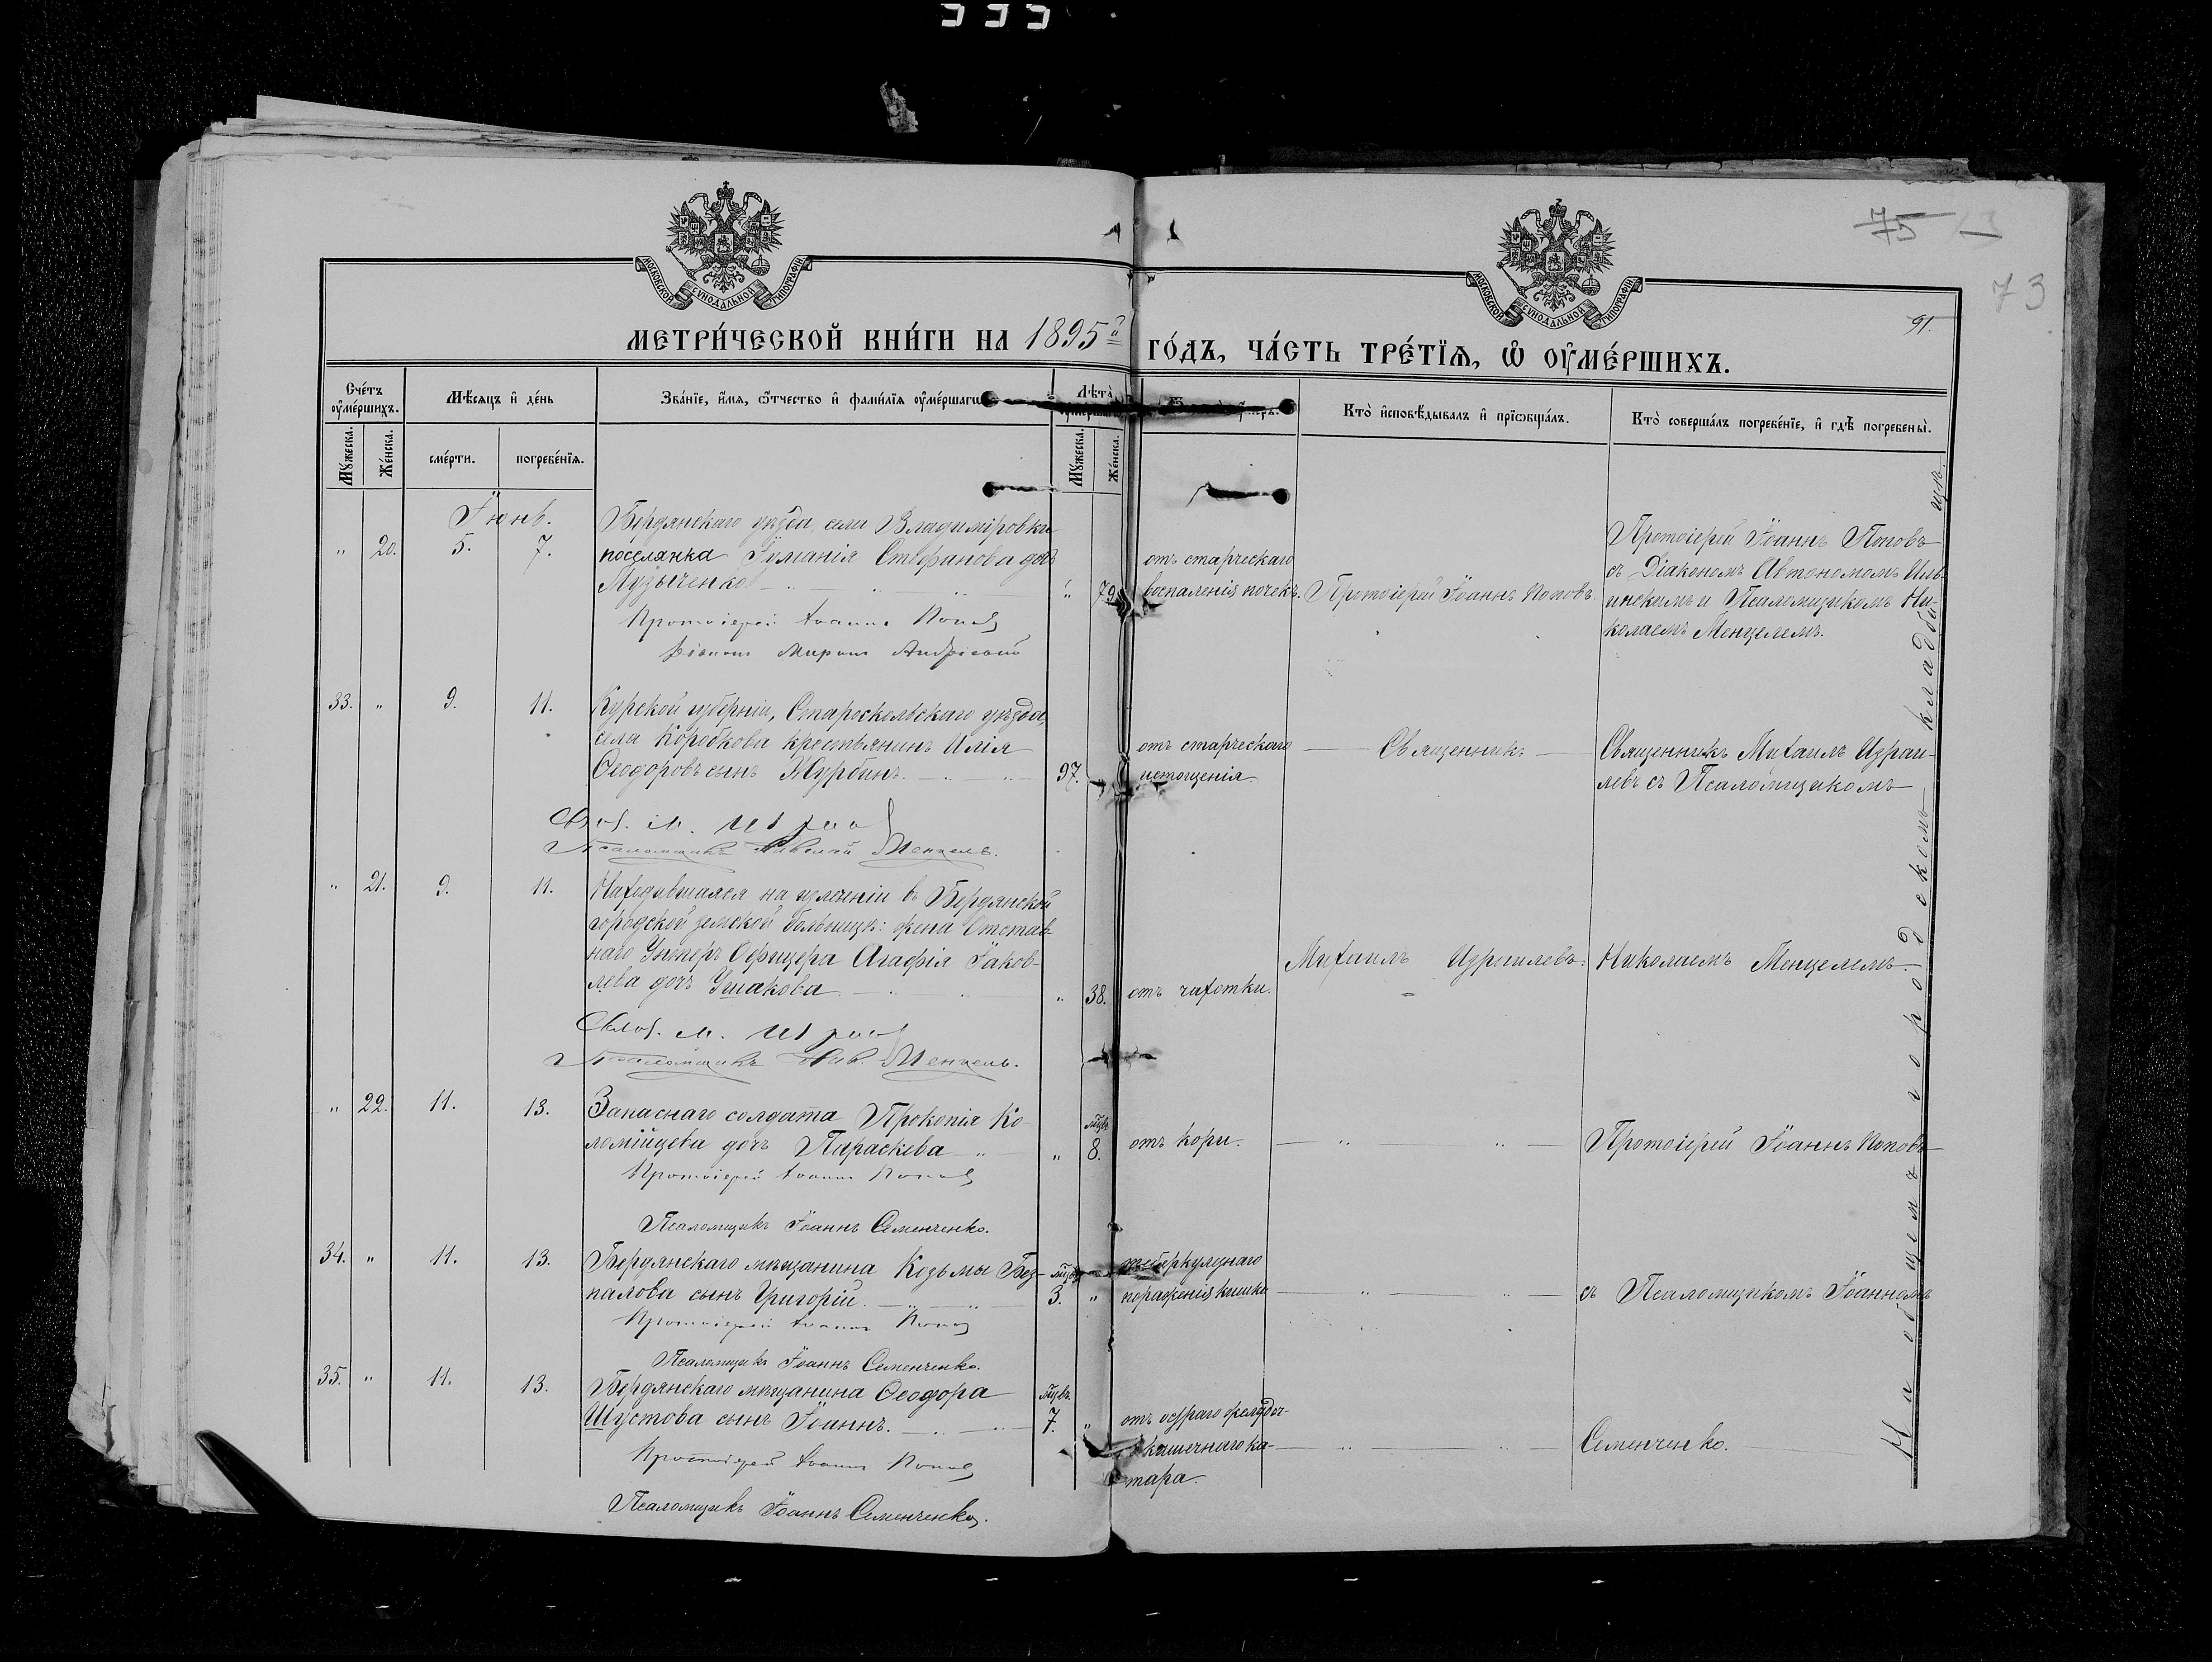 75
73
91.
МОСКОВСКОЙ СѴНОДАЛЬНОЙ ТИПОГРАФІИ
МОСКОВСКОЙ СѴНОДАЛЬНОЙ ТИПОГРАФІИ
МЕТРИ́ЧЕСКОЙ КНИ́ГИ НА 1895й ГО́ДЪ, ЧА́СТЬ ТРЕ́ТЇѦ, Ѽ ОУ҆МЕ́РШИХЪ.
Сче́тъ оу҆ме́ршихъ.
Мѣ́сяцъ и҆ де́нь
Зва́нїе, и҆́мѧ, ѻ҆́тчество и҆ фами́лїѧ оу҆ме́ршагѡ
Лѣ́та
Кто̀ и҆сповѣ́дывалъ и҆ прїѡбща́лъ.
Кто̀ соверша́лъ погребе́нїе, и҆ гдѣ̀ погребены̀.
Мꙋ́жеска.
Же́нска.
сме́рти.
погребе́нїѧ.
Мꙋ́жеска.
Же́нска.
Іюнь.
" 20. 5. 7.
Бердянскаго уѣзда села Владиміровки
поселянка Іуліанія Стефанова дочь
Музыченко " 79
Протоіерей Іоаннъ Поповъ
отъ старческаго
воспаленія почекъ.
Протоіерей Іоаннъ Поповъ.
Протоіерей Іоаннъ Поповъ
съ Діакономъ Автономомъ Иль-
инскимъ и Псаломщикомъ Ни-
колаемъ Менцелемъ.
33. " 9. 11.
Курской губерніи, Староскольскаго уѣзда,
села Коробкова крестьянинъ Илія
Ѳеодоровъ сынъ Журбинъ. 97. "
Псаломщикъ Николай Менцель.
отъ старческаго
истощенія.
Священникъ
Священникъ Михаилъ Израи-
левъ съ Псаломщикомъ
" 21. 9. 11.
Находившаяся на излеченіи въ Бердянской
городской земской больницѣ: жена Отстав-
наго Унтеръ Офицера Агафія Іаков-
лева дочь Ушакова " 38.
Псаломщикъ Ник. Менцель.
отъ чахотки.
Михаилъ Израилевъ.
Николаемъ Менцелемъ.
" 22. 11. 13.
Запаснаго солдата Прокопія Ко-
ломійцева дочь Параскева " мѣцв. 8.
Протоіерей Іоаннъ Поповъ
Псаломщикъ Іоаннъ Семенченко.
отъ кори.
Протоіерей Іоаннъ Поповъ
34. " 11. 13.
Бердянскаго мѣщанина Козьмы Без-
палова сынъ Григорій. мѣцв. 3. "
Протоіерей Іоаннъ Поповъ
Псаломщикъ Іоаннъ Семенченко.
туберкулезнаго
пораженія кишекъ
съ Псаломщикомъ Іоанномъ
35. " 11. 13.
Бердянскаго мѣщанина Ѳеодора
Шустова сынъ Іоаннъ. мѣцв. 7. "
Протоіерей Іоаннъ Поповъ
Псаломщикъ Іоаннъ Семенченко.
отъ остраго желудоч-
кишечнаго ка-
тара.
Семенченко.
На общемъ городскомъ кладбищѣ.